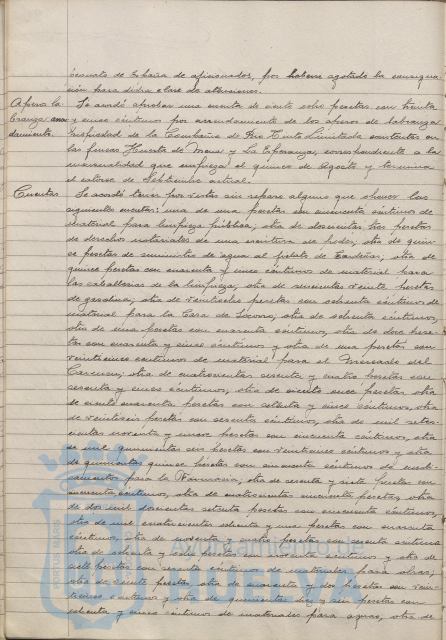 de España de aficionados, por haberse agotado la consigna-
ción para dicha clase de atenciones.
Apero la-
branza arren-
damiento.
Se acordó aprobar una cuenta de ciento ocho pesetas con treinta
y cinco céntimos por arrendamiento de los aperos de labranza
propiedad de la Compañía de Rio Tinto Limitada existentes en
las fincas Huerta de Mena y La Esperanza, correspondiente a la
mensualidad que empieza el quince de Agosto y termina
el catorce de Septiembre actual.
Cuentas.
Se acordó tener por vistas sin reparo alguno que oponer las
siguientes cuentas: una de una peseta con cincuenta céntimos de
material para limpieza pública; otra de doscientas tres pesetas
de derechos notariales de una escritura de poder; otra de quin-
ce pesetas de suministro de agua al; otra de
quince pesetas con cuarenta y cinco céntimos de material para
las caballerías de la limpieza; otra de veinte pesetas
de gasolina; otra de veintiocho pesetas con ochenta céntimos de
material para la Casa de Socorro; otra de ochenta céntimos,
otra de una peseta con cuarenta céntimos, otra de doce pese-
tas con cuarenta y cinco céntimos y otra de una peseta con
veinticinco céntimos de material para el Mercado del
Carmen; otra de cuatrocientas sesenta y cuatro pesetas con
sesenta y cinco céntimos, otra de ciento once pesetas, otra
de ciento cuarenta pesetas con setenta y cinco céntimos, otra
de veintiseis pesetas con sesenta céntimos, otra de mil
cientas noventa y nueve pesetas con cincuenta céntimos, otra
de mil quinientas seis pesetas con veinticinco céntimos y otra
de quinientas quince pesetas con cincuenta céntimos de medi-
camentos para la Farmacia; otra de sesenta y siete pesetas con
cincuenta céntimos, otra de cuatrocientas cincuenta pesetas, otra
de dos mil doscientas setenta pesetas con cincuenta céntimos,
otra de mil cuatrocientas ochenta y una pesetas con cuarenta
céntimos, otra de noventa y cuatro pesetas con sesenta céntimos
otra de ochenta y pesetas con céntimos y otra de
mil pesetas con sesenta céntimos de materiales para obras;
otra de veinte pesetas, otra de cuarenta y dos pesetas con vein-
ticinco céntimos y otra de quinientas diez y seis pesetas con
ochenta y cinco céntimos de materiales para aguas, otra de
Ayuntamiento de
HUELVA